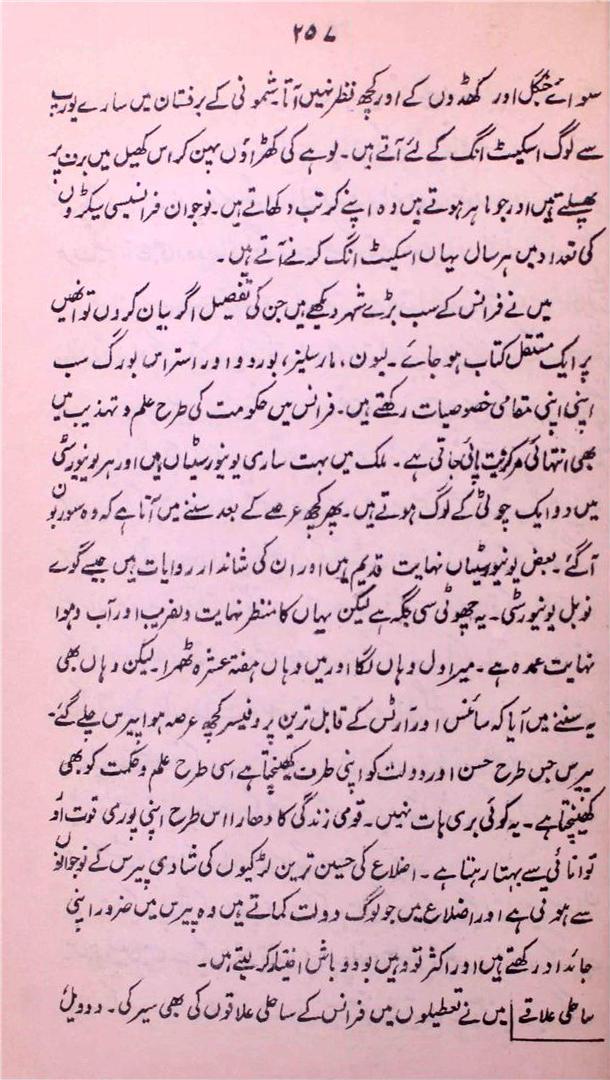 ۲۵۷
سوائے جنگل اور کھڈوں کے اور کچھ نظر نہیں آتا۔ شمونی کے برفستان میں سارے یورپ
سے لوگ اسکیٹ انگ کے لئے آتے ہیں۔ لوہے کی کھڑاؤں پہن کر اس کھیل میں برف پر
پھسلتے ہیں اور جو ماہر ہوتے ہیں وہ اپنے کرتب دکھاتے ہیں۔ نوجوان فرانسیسی سیکڑوں
کی تعداد میں ہر سال یہاں اسکیٹ انگ کرنے آتے ہیں۔
میں نے فرانس کے سب بڑے شہر دیکھے ہیں جن کی تفصیل اگر بیان کروں تو انھیں
پر ایک مستقل کتاب ہو جائے۔ لیون، مارسلیز، بوردو اور استراس بورگ سب
اپنی اپنی مقامی خصوصیات رکھتے ہیں۔ فرانس میں حکومت کی طرح علم و تہذیب میں
بھی انتہائی مرکزیت پائی جاتی ہے۔ ملک میں بہت ساری یونیورسٹیاں ہیں اور ہر یونیورسٹی
میں دو ایک چوٹی کے لوگ ہوتے ہیں۔ پھر کچھ عرصے کے بعد سننے میں آتا ہے کہ وہ سوربون
آ گئے۔ بعض یونیورسٹیاں نہایت قدیم ہیں اور ان کی شاندار روایات ہیں جیسے گرے
نوبل یونیورسٹی۔ یہ چھوٹی سی جگہ ہے لیکن یہاں کا منظر نہایت دلفریب اور آب و ہوا
نہایت عمدہ ہے۔ میرا دل وہاں لگا اور میں وہاں ہفتہ عشرہ ٹھہرا۔ لیکن وہاں بھی
یہ سننے میں آیا کہ سائنس اور آرٹس کے قابل ترین پروفیسر کچھ عرصہ ہوا پیرس چلے گئے۔
پیرس جس طرح حسن اور دولت کو اپنی طرف کھینچتا ہے اسی طرح علم و حکمت کو بھی
کھینچتا ہے۔ یہ کوئی بری بات نہیں۔ قومی زندگی کا دھارا اس طرح اپنی پوری قوت اور
توانائی سے بہتا رہتا ہے۔ اضلاع کی حسین ترین لڑکیوں کی شادی پیرس کے نوجوانوں
سے ہوتی ہے اور اضلاع میں جو لوگ دولت کماتے ہیں وہ پیرس میں ضرور اپنی
جائداد رکھتے ہیں اور اکثر تو وہیں بود و باش اختیار کر لیتے ہیں۔
ساحلی علاقے میں نے تعطیلوں میں فرانس کے ساحلی علاقوں کی بھی سیر کی۔ دوویل